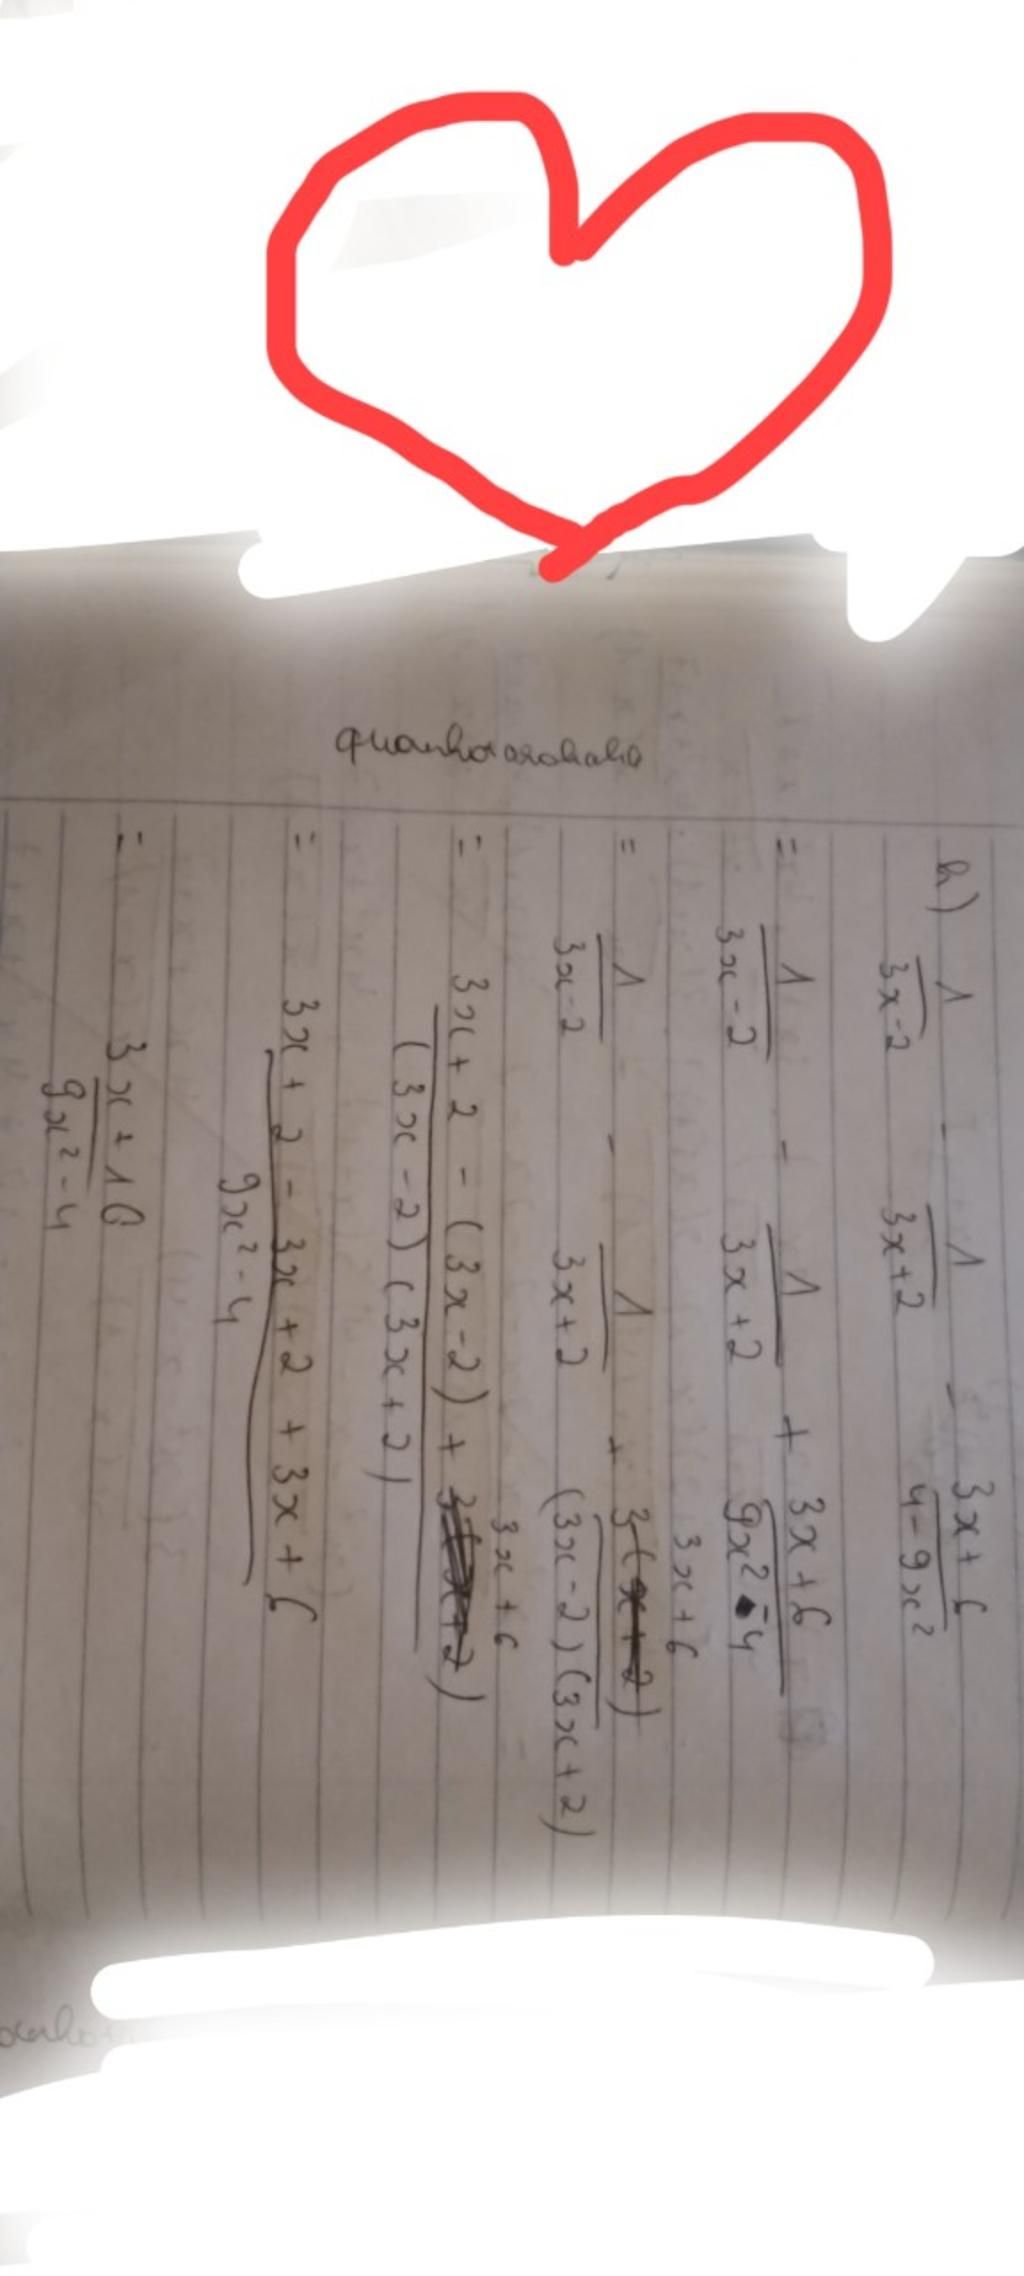 quanhoaxohaha
h) 1/(3x-2) - 1/(3x+2) - (3x+6)/(4-9x²)
= 1/(3x-2) - 1/(3x+2) + (3x+6)/(9x²-4)
3x+6
= 1/(3x-2) - 1/(3x+2) + 3(x+2)/((3x-2)(3x+2))
3x+6
= (3x+2 - (3x-2) + 3(x+2))/((3x-2)(3x+2))
= (3x+2 - 3x+2 + 3x+6)/(9x²-4)
= (3x+10)/(9x²-4)